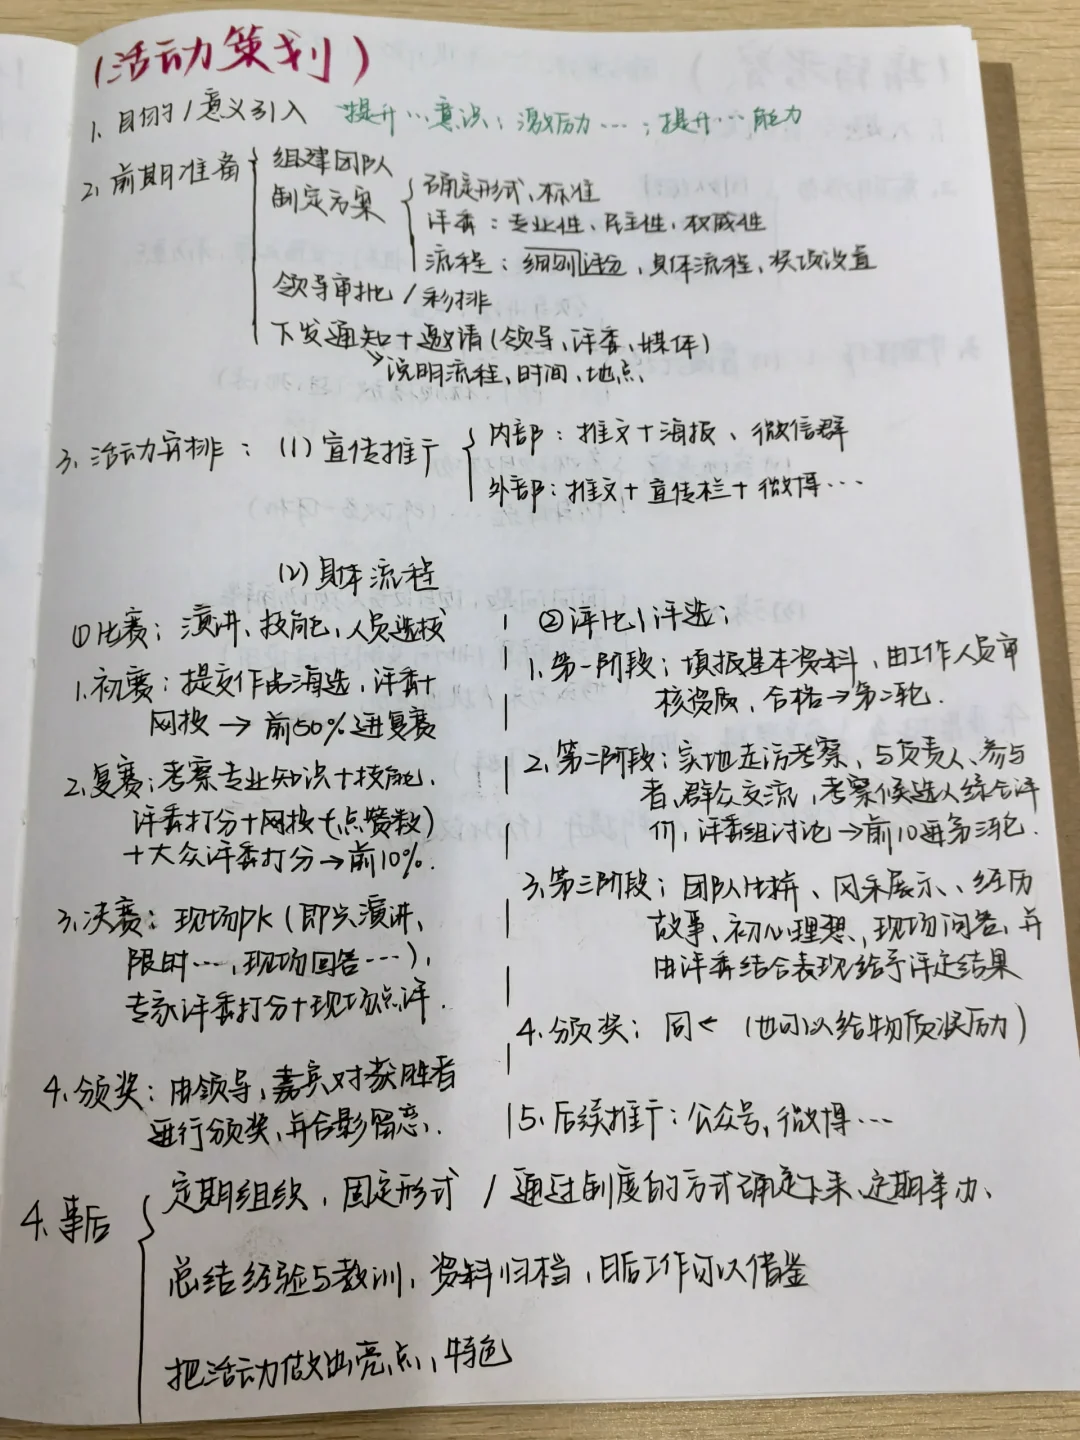 (活动策划)
1、目的/意义引入 提升…意识；激励…；提升…能力
2、前期准备
组建团队
制定方案
确定形式、标准
评委：专业性、民主性、权威性
流程：细则评分，具体流程，奖项设置
领导审批/彩排
下发通知+邀请(领导、评委、媒体)
↘说明流程、时间、地点、
3、活动安排：(1)宣传推广
内部：推文+海报、微信群
外部：推文+宣传栏+微博…
(2)具体流程
①比赛：演讲、技能、人员选拔
1.初赛：提交作品海选，评委+
网投→前50%进复赛
2.复赛：考察专业知识+技能.
评委打分+网投(点赞数)
+大众评委打分→前10%.
3.决赛：现场PK(即兴演讲、
限时…，现场回答…)，
专家评委打分+现场点评.
4.颁奖：由领导、嘉宾对获胜者
进行颁奖、并合影留念.
②评比/评选：
1.第一阶段：填报基本资料，由工作人员审
核资质，合格→第二轮.
2.第二阶段：实地走访考察，与负责人、参与
者、群众交流，考察候选人综合评
价，评委组讨论→前10进第三轮.
3.第三阶段：团队比拼、风采展示、经历
故事、初心理想、现场问答、并
由评委结合表现给予评定结果
4.颁奖：同← (也可以给物质奖励)
5.后续推广：公众号，微博…
4.事后
定期组织，固定形式/通过制度的方式确定下来、定期举办、
总结经验与教训，资料归档，日后工作可以借鉴
把活动做出亮点，特色